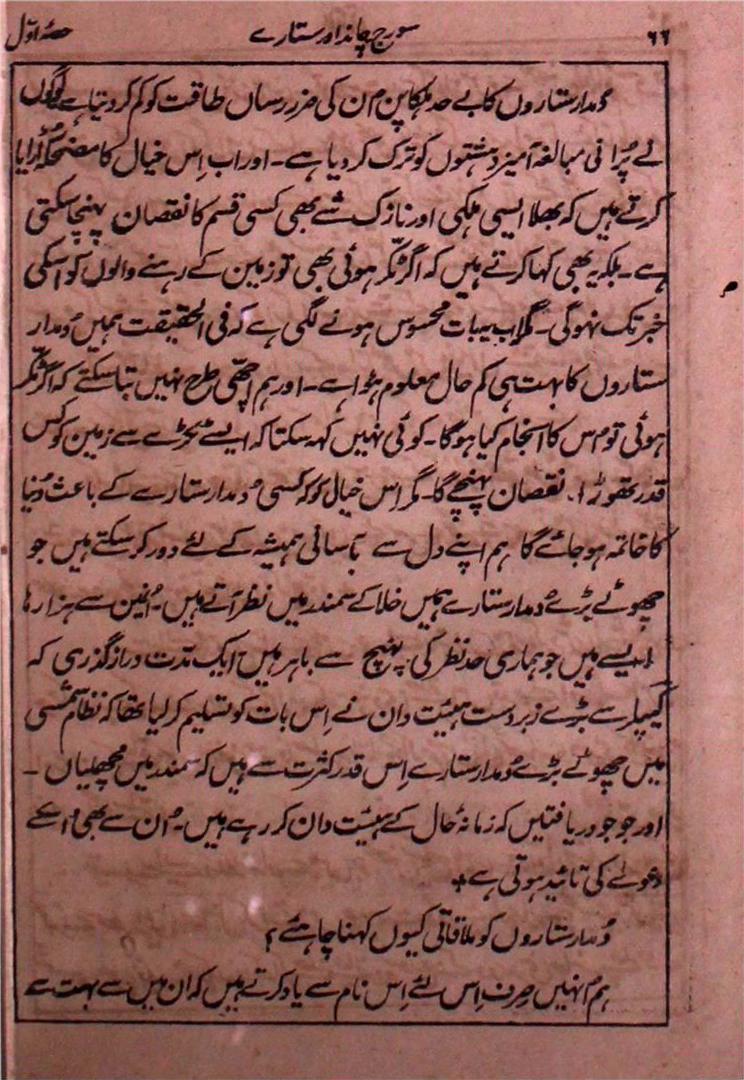 ۶۶ سورج چاند اور ستارے حصۂ اوّل
دُمدار ستاروں کا بے حد ہلکا پن اُن کی ضرر رساں طاقت کو کم کر دیتا ہے لوگوں
نے پُرانی مبالغہ آمیز دہشتوں کو ترک کر دیا ہے۔ اور اب اِس خیال کا مضحکہ اُڑایا
کرتے ہیں کہ بھلا ایسی ہلکی اور نازک شے بھی کسی قسم کا نقصان پہنچا سکتی
ہے۔ بلکہ یہ بھی کہا کرتے ہیں کہ اگر ٹکّر ہوئی بھی تو زمین کے رہنے والوں کو اسکی
خبر تک نہوگی۔ مگر اب یہ بات محسوس ہونے لگی ہے کہ فی الحقیقت ہمیں دُمدار
ستاروں کا بہت ہی کم حال معلوم ہوُا ہے۔ اور ہم اچھّی طرح نہیں بتا سکتے کہ اگر ٹکّر
ہوئی تو اس کا انجام کیا ہوگا۔ کوئی نہیں کہہ سکتا کہ ایسے بھڑنے سے زمین کو کس
قدر تھوڑا۔ نقصان پہنچے گا۔ مگر اِس خیال کو کہ کسی دُمدار ستارے کے باعث دُنیا
کا خاتمہ ہو جائے گا ہم اپنے دل سے بآسانی ہمیشہ کے لئے دور کر سکتے ہیں جو
چھوٹے بڑے دُمدار ستارے ہمیں خلا کے سمندر میں نظر آتے ہیں۔ اُنمیں سے ہزارہا
ایسے ہیں جو ہماری حد نظر کی پہنچ سے باہر ہیں ایک مدّت دراز گذری کہ
کیپلر سے بڑے زبردست ہیئت دان نے اِس بات کو تسلیم کر لیا تھا کہ نظام شمسی
میں چھوٹے بڑے دُمدار ستارے اِس قدر کثرت سے ہیں کہ سمندر میں مچھلیاں۔
اور جو جو دریافتیں کہ زمانۂ حال کے ہیئت دان کر رہے ہیں۔ اُن سے بھی اسکے
دعوے کی تائید ہوتی ہے+
دُمدار ستاروں کو ملاقاتی کیوں کہنا چاہئے؟
ہم اُنہیں صِرف اِس لئے اِس نام سے یاد کرتے ہیں کہ ان میں سے بہت سے